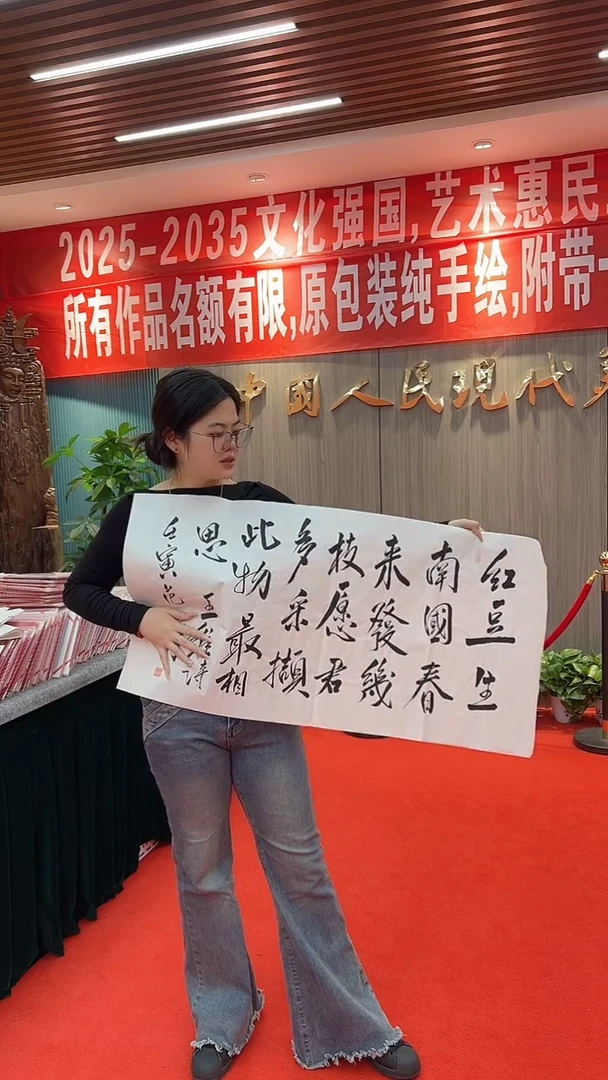 2025-2035文化强国,艺术惠民
所有作品名额有限,原包装纯手绘,附带
中國人民现代
红豆生
南國春
来發幾
枝愿君
多采擷
此物最相
思
王
詩
壬寅